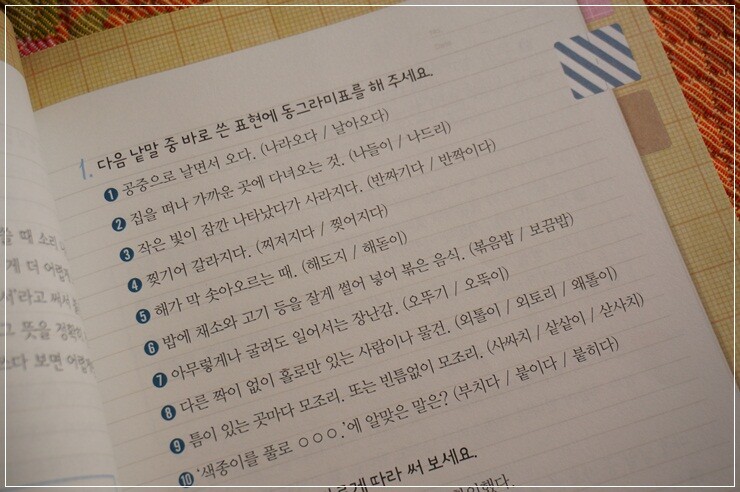 쓸 때 소리
게 더 어렵
서'라고 써서
그 뜻을 정확
쓰다 보면 어렵
1. 다음 낱말 중 바로 쓴 표현에 동그라미표를 해 주세요.
1 공중으로 날면서 오다. (나라오다 / 날아오다)
2 집을 떠나 가까운 곳에 다녀오는 것. (나들이 / 나드리)
3 작은 빛이 잠깐 나타났다가 사라지다. (반짜기다 / 반짝이다)
4 찢기어 갈라지다. (찌저지다 / 찢어지다)
5 해가 막 솟아오르는 때. (해도지 / 해돋이)
6 밥에 채소와 고기 등을 잘게 썰어 넣어 볶은 음식. (볶음밥 / 보끔밥)
7 아무렇게나 굴려도 일어서는 장난감. (오뚜기 / 오뚝이)
8 다른 짝이 없이 홀로만 있는 사람이나 물건. (외톨이 / 외토리 / 왜톨이)
9 틈이 있는 곳마다 모조리. 또는 빈틈없이 모조리. (사싸치 / 샅샅이 / 삳사치)
10 '색종이를 풀로 ○○○.'에 알맞은 말은? (부치다 / 붙이다 / 붙히다)
게 따라 써 보세요.
했다.